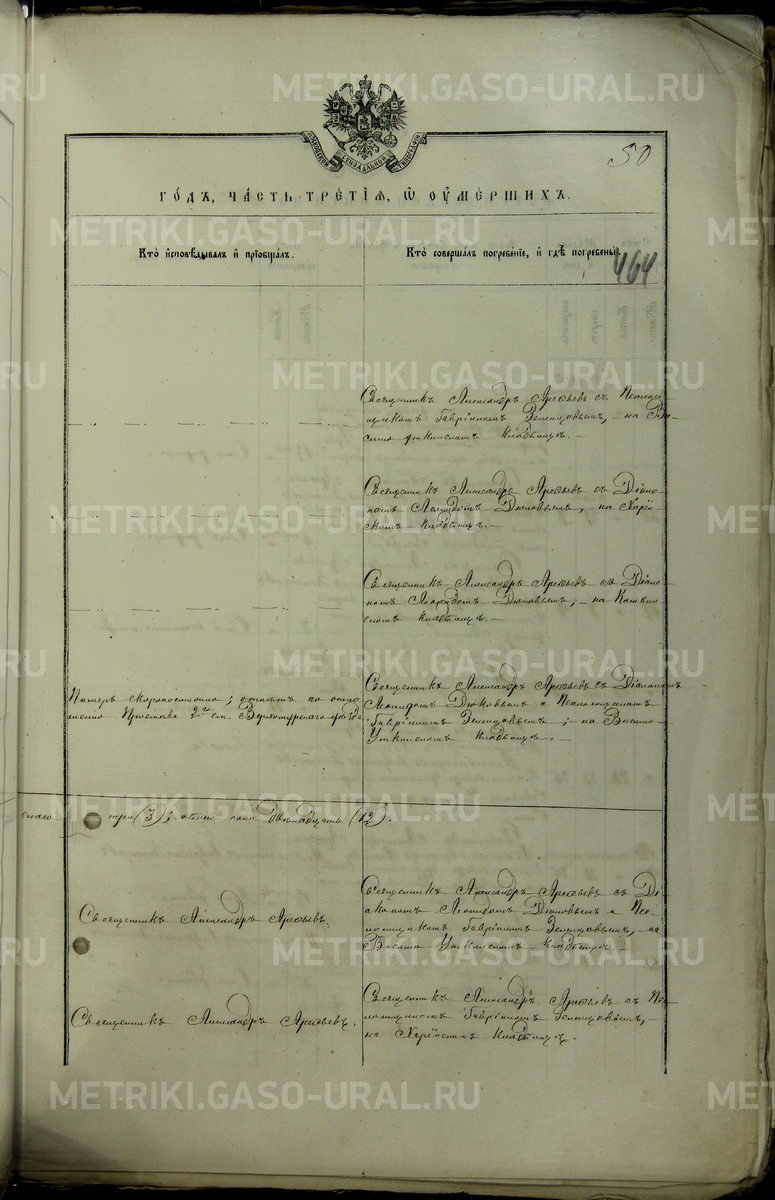 METRIKI.GASO-URAL.RU
50
ГО́ДЪ, ЧА́СТЬ ТРЕ́ТІѦ, Ѡ ОУ҆МЕ́РШИХЪ.
Кто̀ и҆сповѣ́дывалъ и҆ прїѡбща́лъ.
Кто̀ соверша́лъ погребе́нїе, и҆ гдѣ̀ погребены̀.
464
Священникъ Александръ Арефьевъ съ Псаломщ-
щикомъ Гавріиломъ Земляновымъ, - на
Уткинскомъ Кладбищѣ. -
Священникъ Александръ Арефьевъ съ Діако-
номъ Леонидомъ Дюковымъ, - на
кладбищѣ. -
Священникъ Александръ Арефьевъ съ Діако-
номъ Леонидомъ Дюковымъ, - на
скомъ кладбищѣ. -
Померъ скоропостижно; отпѣтъ по отно-
шенію Пристава 2го ст. Верхотурскаго уѣзда
Священникъ Александръ Арефьевъ съ Діакономъ
Леонидомъ Дюковымъ и Псаломщикомъ
Гавріиломъ ; - на Висимо-
Уткинскомъ Кладбищѣ. -
скаго три (3); женска пола двѣнадцать (12).
Священникъ Александръ Арефьевъ.
Священникъ Александръ Арефьевъ съ Ді-
акономъ Леонидомъ Дюковымъ и Пса-
ломщикомъ Гавріиломъ , на
Висимо Уткинскомъ Кладбищѣ. -
Священникъ Александръ Арефьевъ.
Священникъ Александръ Арефьевъ съ Пса-
ломщикомъ Гавріиломъ , -
на Кладбищѣ.